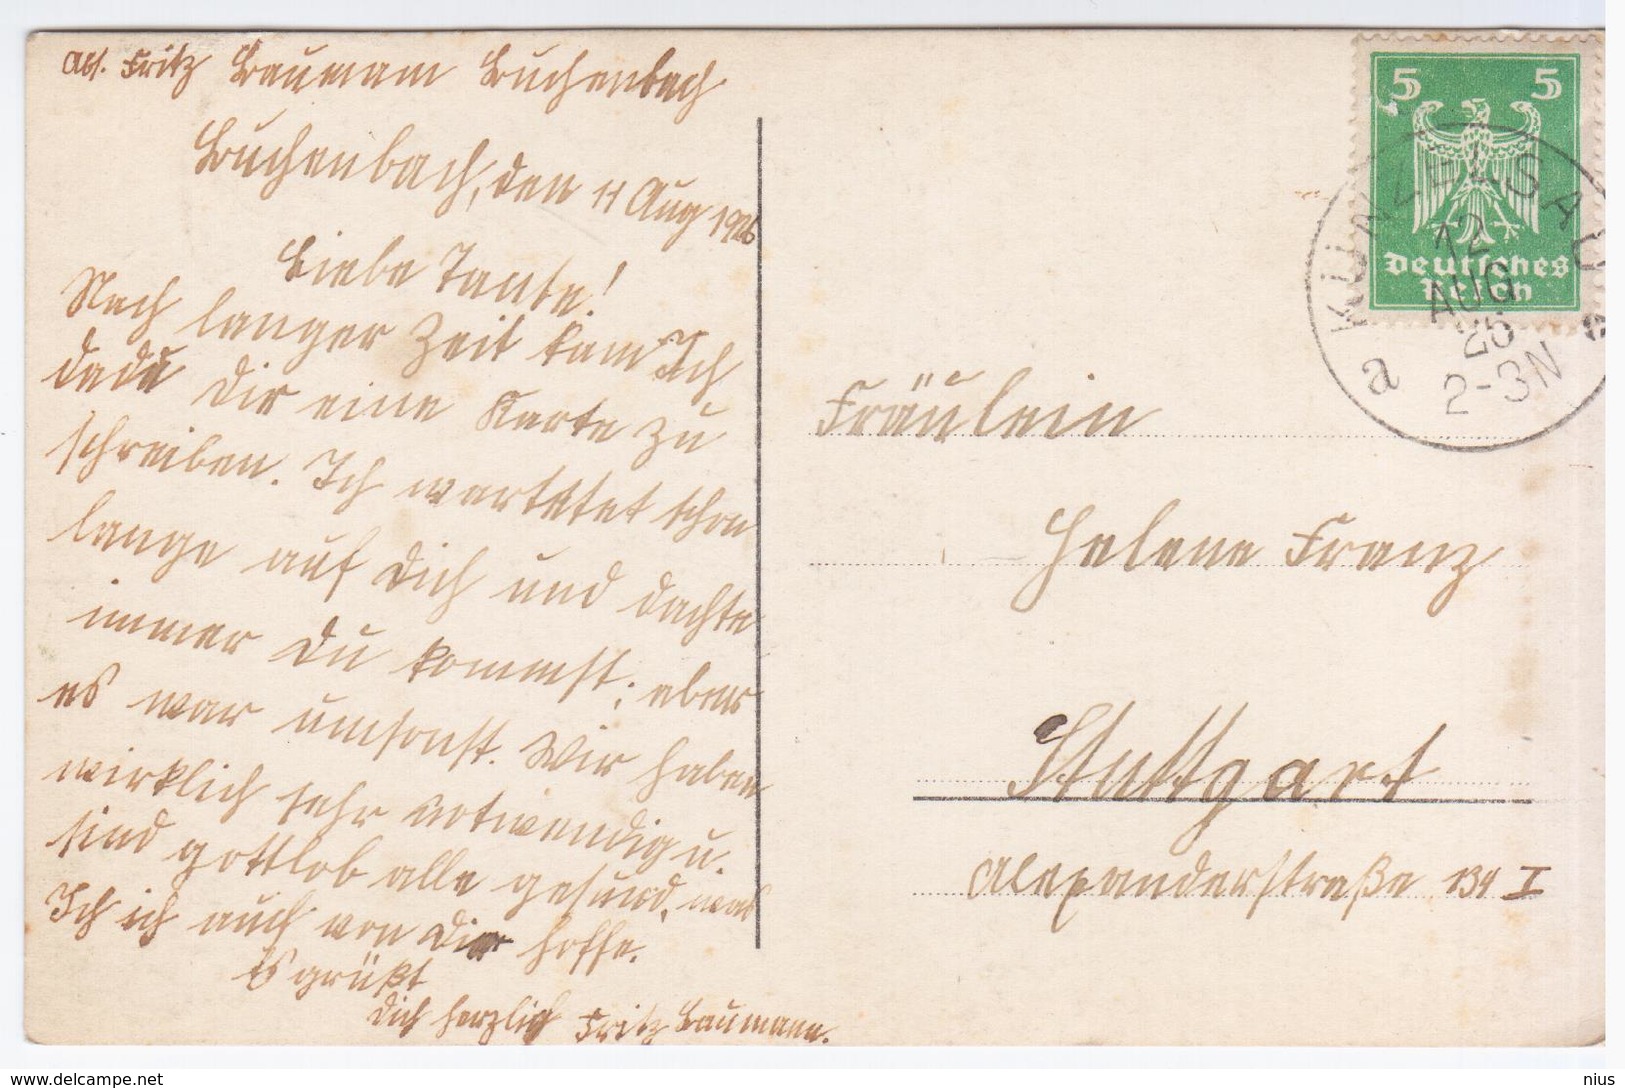 Abs. Fritz Baumann Buchenbach
Buchenbach, den 11 Aug 1926
Liebe Tante!
Nach langer Zeit kam Ich
dadu Dir eine Karte zu
schreiben. Ich wartetet schon
lange auf Dich und dachte
immer Du kommst; aber
es war umsonst. Wir haben
wirklich sehr notwendig u.
sind gottlob alle gesund, was
Ich ich auch von Dir hoffe.
Es grüßt
Dich herzlich Fritz Baumann.
5 5
Deutsches
Reich
KÜNZELSAU
12
AUG
26
2-3N
a
Fräulein
Helene Franz
Stuttgart
Alexanderstraße 134 I
www.delcampe.net
nius